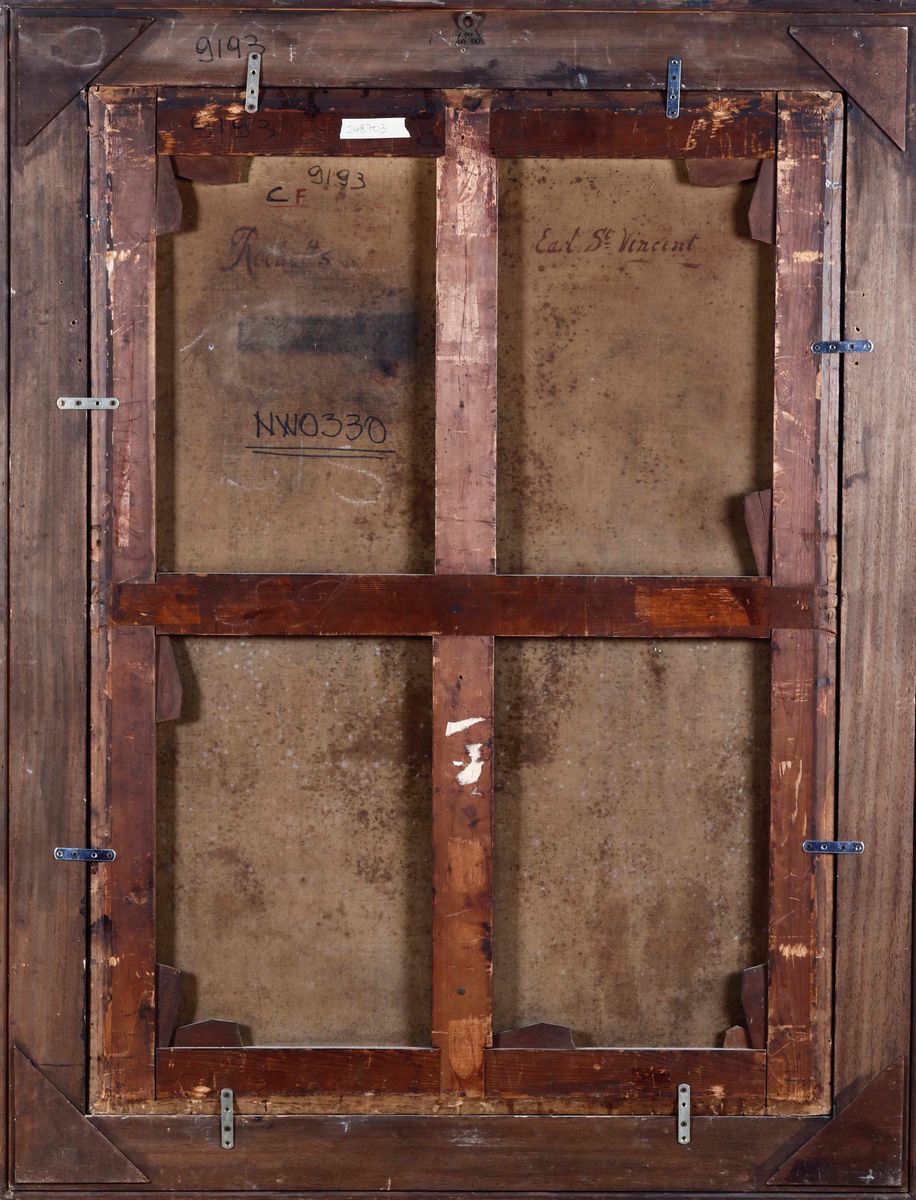 9193
9193
248703
9193
C F
Rochetts
Earl St. Vincent
NW0330